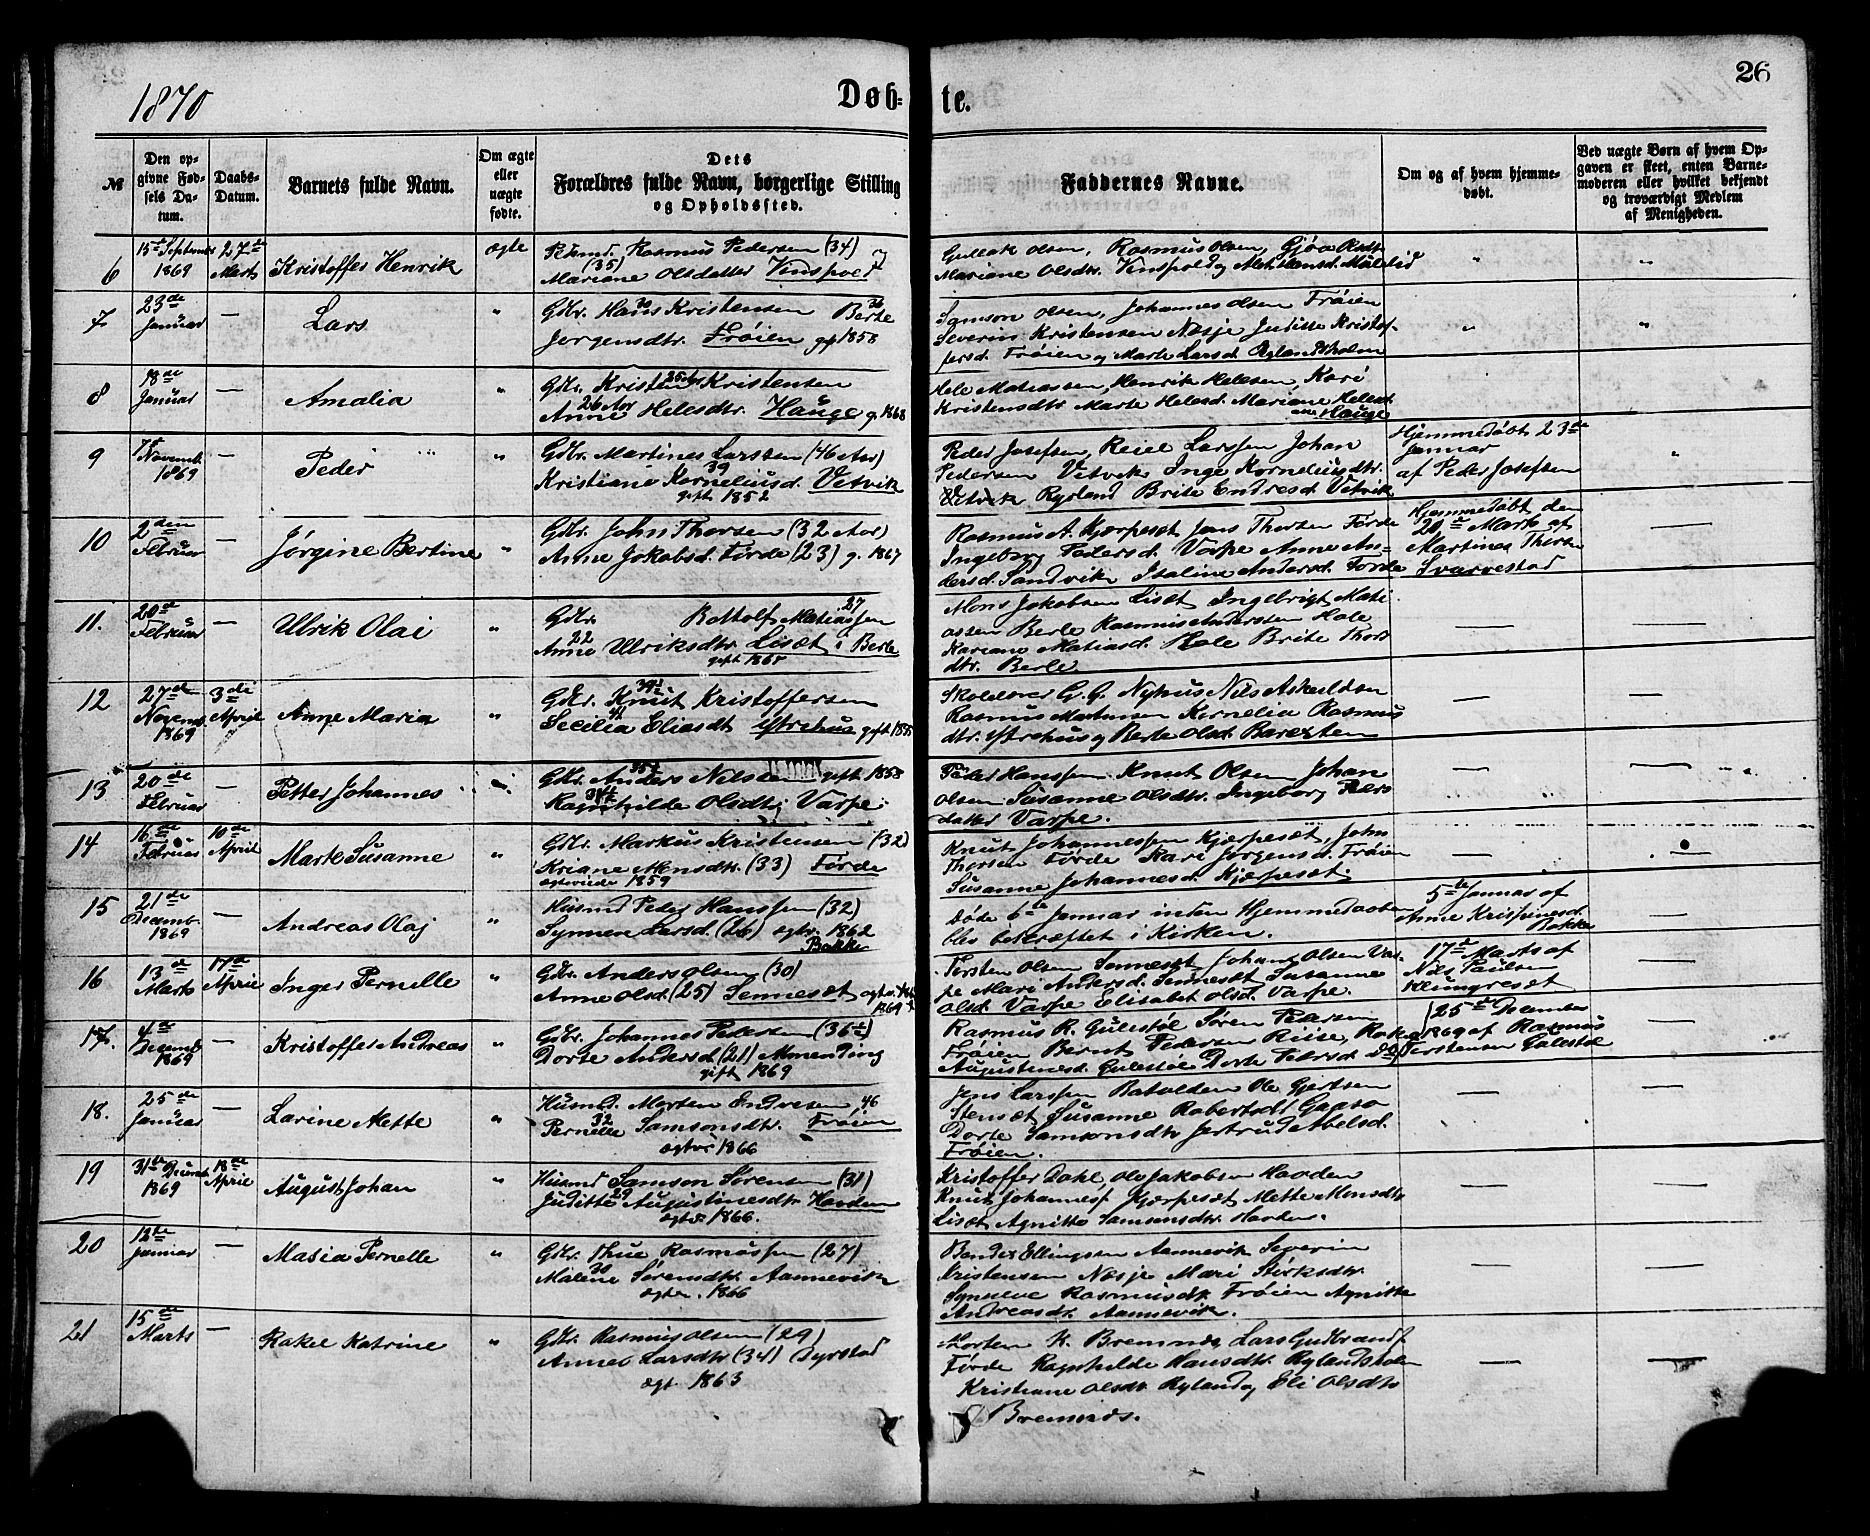 26
1870
Døb- te.
№
Den op-
givne Fød-
sels Da-
tum.
Daabs-
Datum.
Barnets fulde Navn.
Om ægte
eller
uægte
fødte.
Dets
Forældres fulde Navn, borgerlige Stilling
og Opholdssted.
Faddernes Navne.
Om og af hvem hjemme-
døbt.
Ved uægte Børn af hvem Op-
gaven er skeet, enten Barne-
moderen eller hvilket bekjendt
og troværdigt Medlem
af Menigheden.
6
15de Septemb
1869
27de
Marts
Kristoffer Henrik
ægte
Rasmus Pedersen (34)
(35)
Mariane Olsdatter
Gullak Olsen, Rasmus Olsen, Gjøa Olsdtr
Mariane Olsdtr.
7
23de
Januar
—
Lars
"
Gbr. Hans Kristensen Berte
Jørgensdtr. Frøien gift 1858
Samson Olsen, Johannes Olsen Frøien
Severin Kristensen Nesje Juditte Kristof-
fersd. Frøien og Marte Larsd. Rylandsholm
8
18de
Januar
—
Amalia
"
Gbr. Kristen Kristensen
Anne Helesdtr. Hauge g. 1868
Hele Matiassen, Henrik Helesen, Kari
Kristensdtr Marte Helesd. Mariane Helesd.
Hauge
9
Novemb.
1869
—
Peder
"
Gbr. Martines Larssen (46 Aar)
39
Kristiane Korneliusd. Vetvik
gift 1852
Peder Josefsen, Reiel Larssen Johan
Pedersen Vetvik Inge Korneliusdtr.
Ryland Brite Endresd. Vetvik
Hjemmedøbt 23de
Januar
af Peder Josefsen
10
2den
Februar
—
Jørgine Bertine
"
Gbr. John Thorsen (32 Aar)
Anne Jokobsd. Førde (23) g. 1867
Rasmus A. Kjerpeset Jens Thorsen Førde
Ingeborg Pedersd. Varpe Anne An-
dersd. Sandvik Italine Andersd. Førde
Hjemmedøbt den
20de Marts af
Martines Thors
Svarvestad
—
11.
20de
Februar
—
Ulrik Olai
"
27
Gbr. Bottolf Matiassen
22
Anne Ulriksdtr. Liset i Berle
Mons Jakobsen Liset Ingebrigt Mati
assen Berle Rasmus Andersen Hole
Kariane Matiasd. Hole Brite Thors
dtr. Berle
—
—
12
27de
Novemb.
1869
3die
April
Anne Maria
"
Gbr. Knut Kristoffersen
Secilia Eliasdt Ytrehus gift 1855
Skolelærer G. G. Nyhus Nils Askeldsen
Rasmus Martinsen Kornelia Rasmus
dtr. Ytrehus og Berte Olsd. Barexten
—
—
13
20de
Februar
—
Petter Johannes
Gbr. Anders Nelsen gift 1858
Ragnhilde Olsdt. Varpe
Peder Hanssen Knut Olsen Johan
Olsen Susanne Olsdtr. Ingeborg Peders
datter Varpe.
—
—
14
16de
Februar
10de
April
Marte Susanne
"
Gbr. Markus Kristensen (32)
Kriane Monsdtr. (33) Førde
1859
Knut Johannessen Kjerpeset, John
Thorsen Førde Kari Jørgensd. Frøien
Susanne Johannesd. Kjerpeset.
—
—
15
21de
Decemb.
1869
—
Andreas Olaj
"
Husmd Peder Hanssen (32)
Synneve Larsd. (26) ægtv. 1862
Bakke
Døde 6te Januar inden Hjemmedaaben
blev bekræftet i Kirken.
5te Januar af
Anne Krispinusd.
Bakke
—
16
13de
Marts
17de
April
Inger Pernelle
"
Gbr. Anders Olsen (30)
Anne Olsd. (25) Senneset
1869
Torsten Olsen Senneset Johan Olsen Var-
pe Mari Andersd. Senneset Susanne
Olsd. Varpe Elisabet Olsd. Varpe.
17de Marts af
Nils Paulsen
Klungreset
—
17.
4de
Decemb
1869
—
Kristoffer Andreas
"
Gbr. Johannes Petersen (36)
Dorte Andersd (21) Almending
gift 1869
Rasmus R. Gulestøl Søren Pedersen
Frøien Bernt Pedersen Riise, Rakel
Augustinusd. Gulestøl Dorte Pedersd.
25de December
1869 af Rasmus
Torstensen Gulestøl
—
18.
25de
Januar
—
Lavine Mette
"
Husmd. Morten Endresen 46
32
Pernelle Samsonsdtr. Frøien
ægtv 1866
Jens Larssen Batalden Ole Gjertsen
Stenset Susanne Robertsdt Gaasø
Dorte Samsonsdtr Jertrud Abelsd.
Frøien.
—
—
19
31te Decemb
1869
18de
April
August Johan
"
Husmd Samson Sørensen (31)
29
Juditte Augustinesdtr Havden
ægtv. 1866.
Kristoffer Dahl, Ole Jakobsen Havden
Knut Johannesf Kjerpeset Mette Monsdtr
Liset Agnitte Samsonsdtr. Havden.
—
—
20
12te
Januar
—
Masia Pernelle
"
Gbr. Thue Rasmussen (27)
30
Malene Sørensdtr. Aannevik
ægtv. 1866
Bendix Ellingsen Aannevik Severin
Kristensen Nesje Mari Størksdtr.
Synneve Rasmusdtr Frøien Agnitte
Andreasdtr. Aannevik.
—
—
21
15de
Marts
—
Rakel Katrine
"
Gbr. Rasmus Olsen (29)
Anne Larsdtr (34) Dyrstad
ægt 1863
Morten K. Bremnes, Lars Gudbrandf
Førde Ragnhilde Hansdtr. Rylandsholm
Kristiane Olsdt Ryland og Eli Olsdtr
Bremnes.
—
—